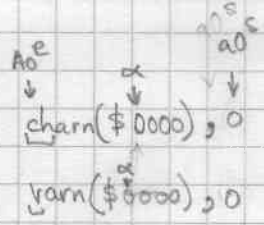 A0^e α a0^s
charn($0000), 0
α
varn($0000), 0